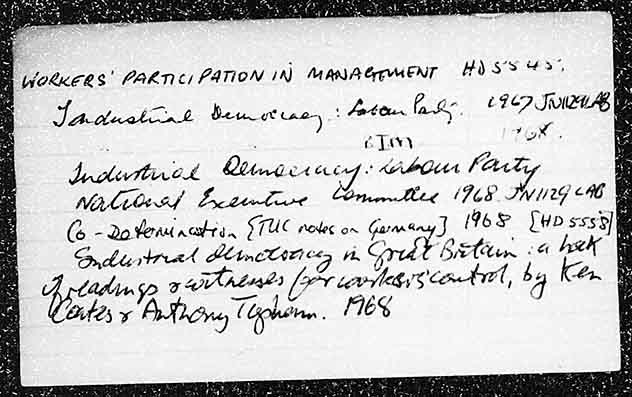 WORKERS' PARTICIPATION IN MANAGEMENT HD5545.
Industrial Democracy: Labour Party. 1967 JN1129LAB
1968.
Industrial Democracy: Labour Party
National Executive Committee 1968 JN1129 LAB
Co-Determination [TUC notes on Germany] 1968 [HD5555]
Industrial democracy in Great Britain: a book
of readings & witnesses for workers' control, by Ken
Coates & Anthony Topham. 1968